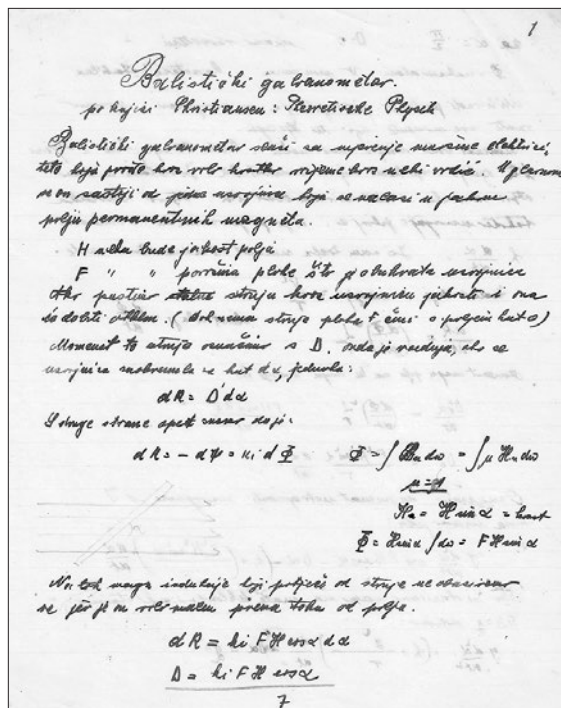 1
Balistički galvanometar.
po knjizi Christiansen: Theoretische Physik
Balistički galvanometar služi za mjerenje množine elektrici-
teta koja prođe kroz vrlo kratko vrijeme kroz neki vodič. U glavnom
se on sastoji od jedne zavojnice koja se nalazi u
polju permanentnih magneta.
H neka bude jakost polja
F " " površina plohe što je obuhvata zavojnica
Ako pustimo struju kroz zavojnicu ona
će dobiti otklon. (Bez struje ploha F čini s poljem kut 0)
Moment te struje označimo s D. onda je radnja, ako se
zavojnica za kut dα, jednaka:
dR = D dα
S druge strane opet znamo da je:
dR = - dψ = ki d Φ Φ = ∫ Bn dω = ∫ μ Hn dω
μ = 1
Hn = H sin α = konst
Φ = H sin α ∫ dω = F H sin α
Na tok indukcije koji potječe od struje ne obaziremo
se jer je on vrlo malen prema toku od polja.
dR = ki F H cos α dα
D = ki F H cos α